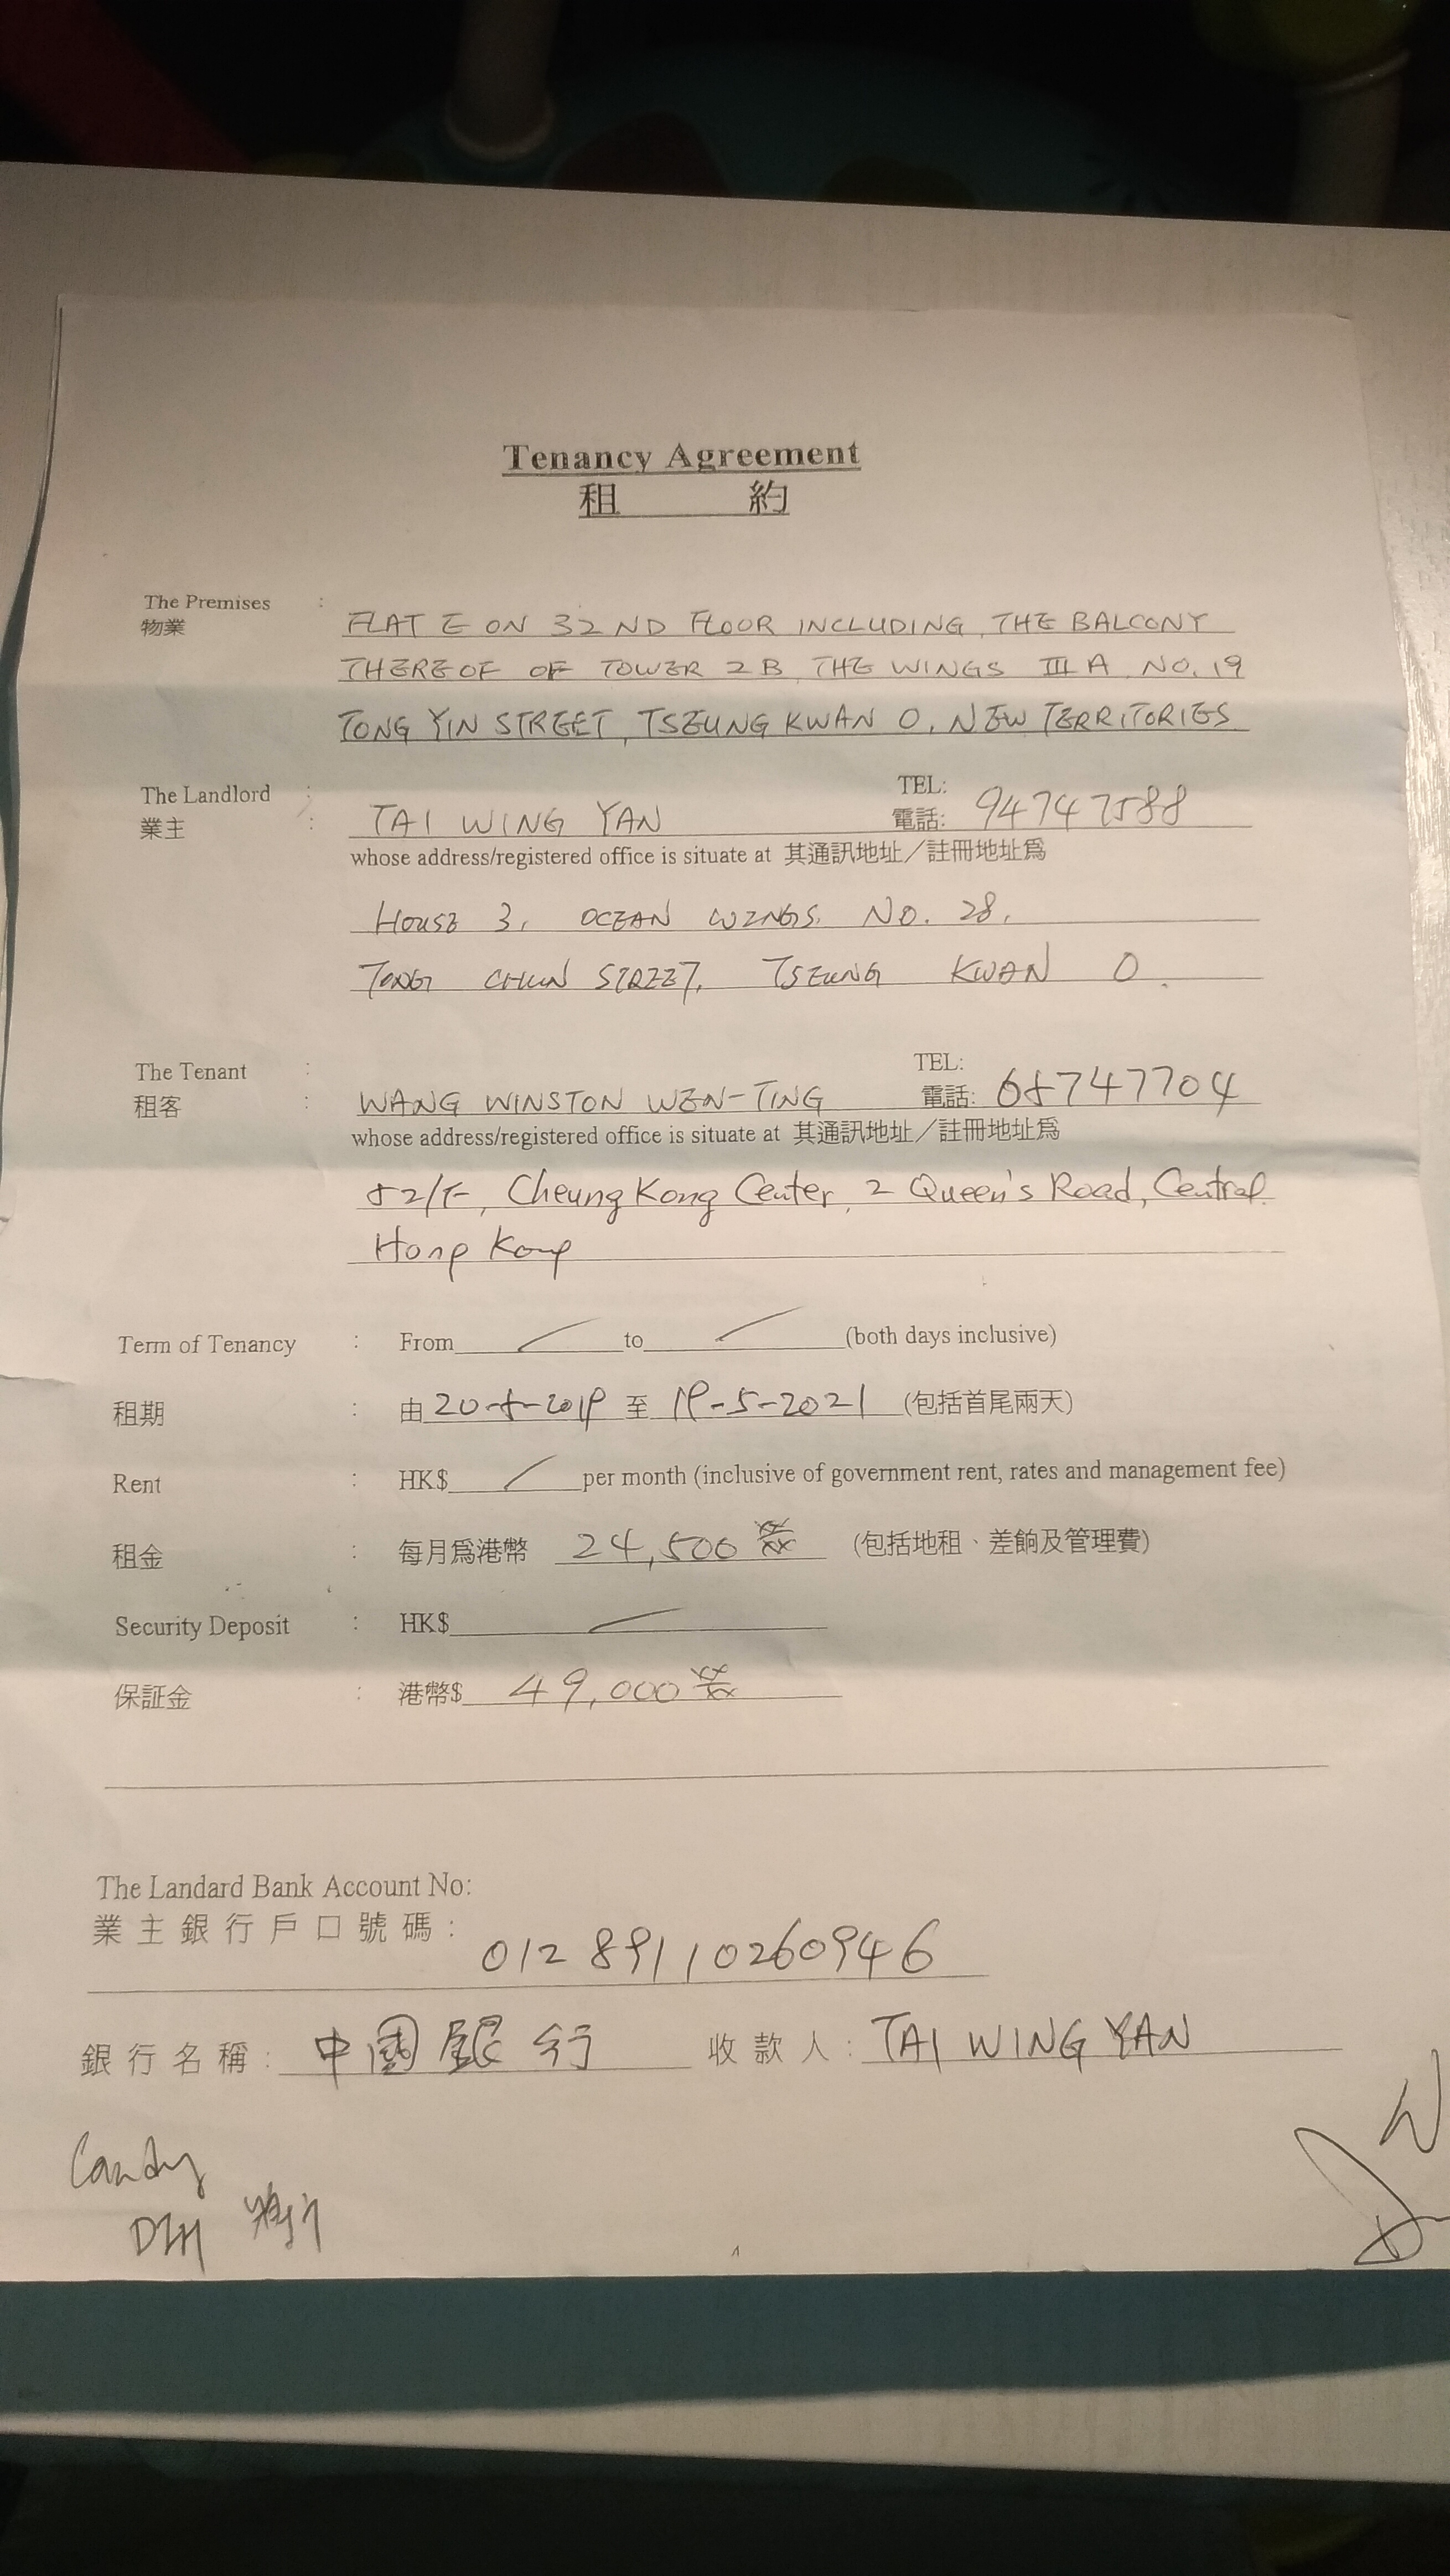 Tenancy Agreement
租 約
The Premises :
物業
FLAT E ON 32ND FLOOR INCLUDING THE BALCONY
THEREOF OF TOWER 2B THE WINGS IIIA NO. 19
TONG YIN STREET, TSEUNG KWAN O, NEW TERRITORIES
The Landlord : TEL:
業主 : TAI WING YAN 電話: 94747588
whose address/registered office is situate at 其通訊地址／註冊地址爲
HOUSE 3, OCEAN WINGS, NO. 28,
TONG CHUN STREET, TSEUNG KWAN O.
The Tenant : TEL:
租客 : WANG WINSTON WEN-TING 電話: 65747704
whose address/registered office is situate at 其通訊地址／註冊地址爲
52/F, Cheung Kong Center, 2 Queen's Road, Central
Hong Kong
Term of Tenancy : From / to / (both days inclusive)
租期 : 由 20-5-2019 至 19-5-2021 (包括首尾兩天)
Rent : HK$ / per month (inclusive of government rent, rates and management fee)
租金 : 每月爲港幣 24,500 (包括地租、差餉及管理費)
Security Deposit : HK$ /
保証金 : 港幣$ 49,000
The Landard Bank Account No:
業主銀行戶口號碼:
012 89110260946
銀行名稱: 中國銀行 收款人: TAI WING YAN
Candy
1